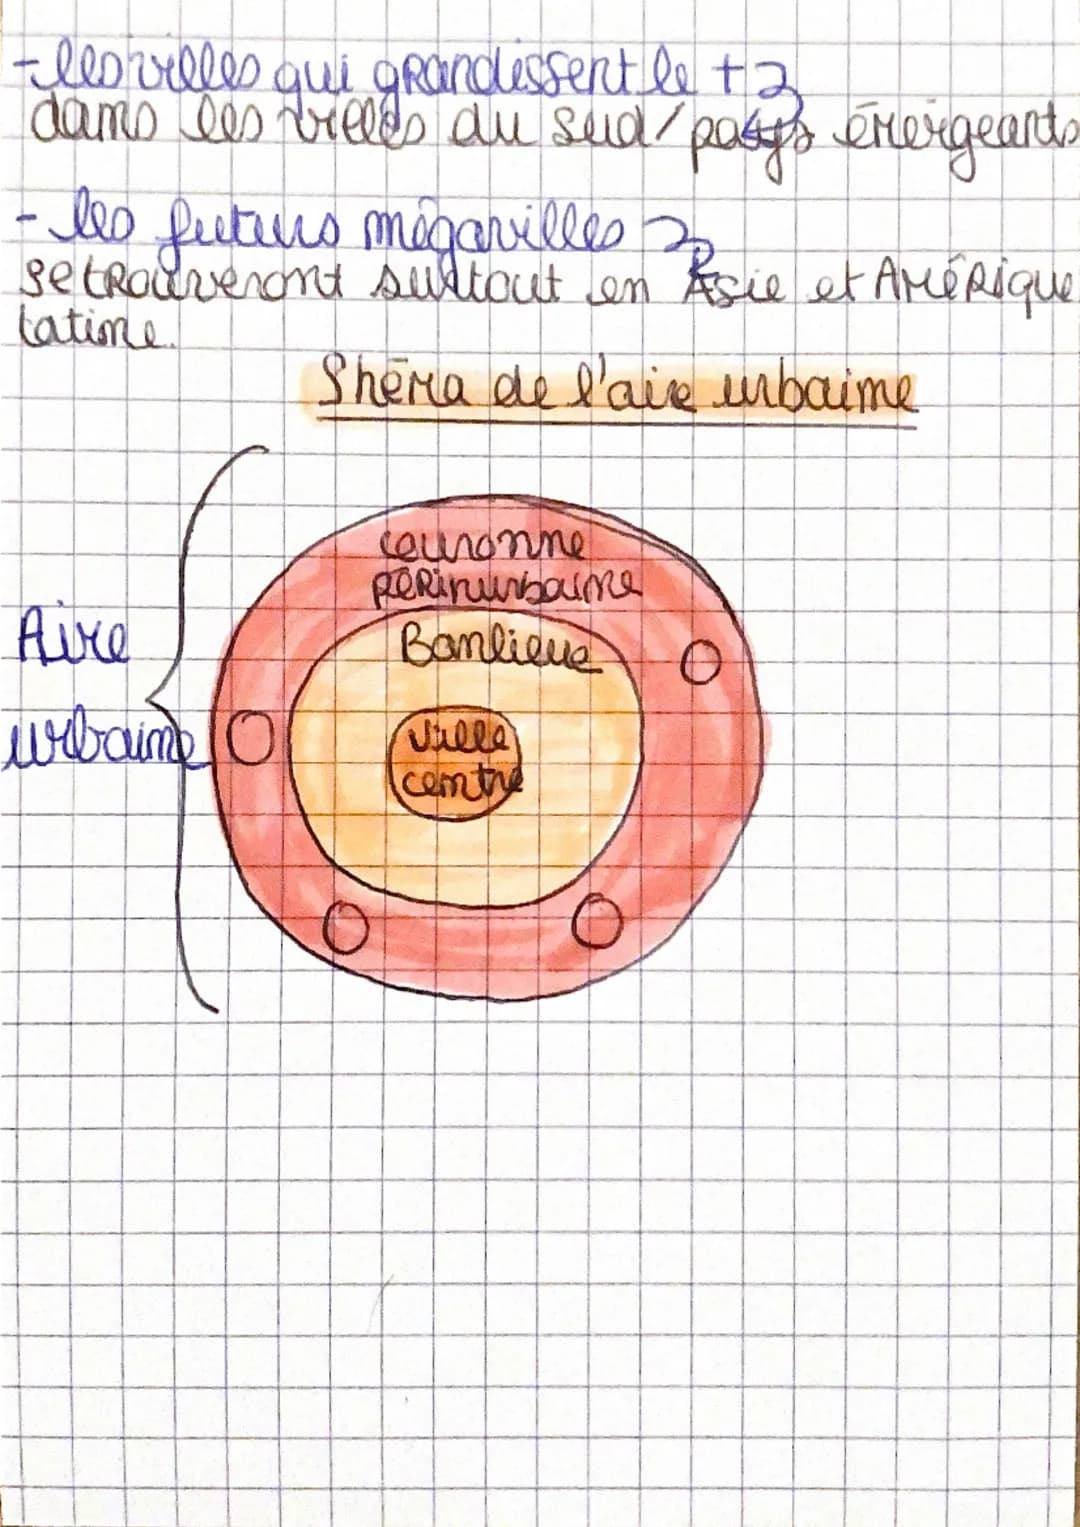 - les villes qui grandissent le +
dans les villes du sud/ pays émergeants
- les futurs mégavilles
se trouveront surtout en Asie et Amérique
latine.
Shéma de l'aire urbaine
couronne
périnurbaine
Banlieue
Aire
urbaine
Ville
centre